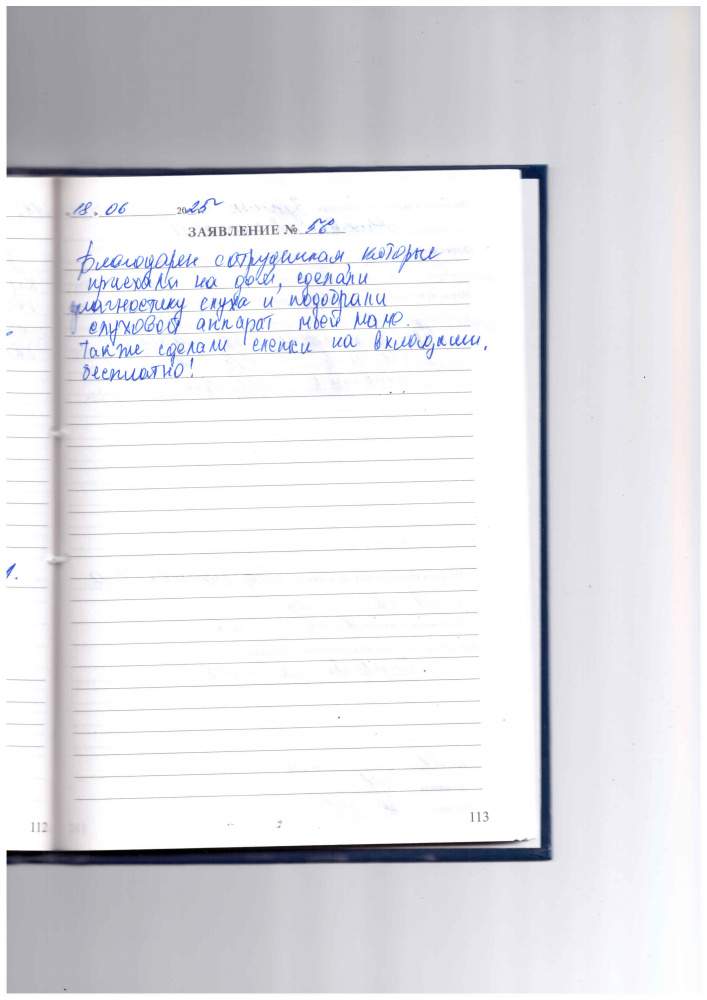 18.06 2025г
ЗАЯВЛЕНИЕ № 56
Благодарен сотрудникам, которые
приехали на дом, сделали
диагностику слуха и подобрали
слуховой аппарат моей маме.
Также сделали слепки на вкладыши,
бесплатно!
1.
112
113